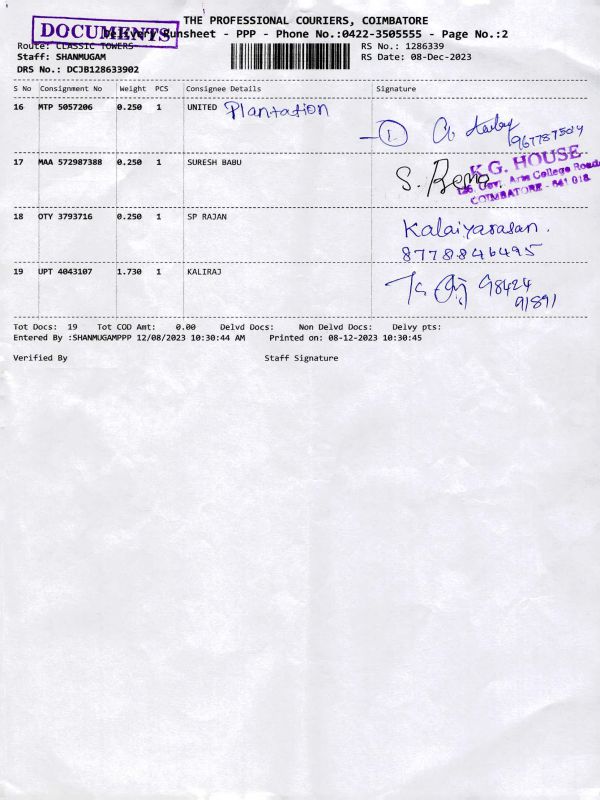 THE PROFESSIONAL COURIERS, COIMBATORE
DOCUMENTS
Delivery Runsheet - PPP - Phone No.:0422-3505555 - Page No.:2
Route: CLASSIC TOWERS
RS No.: 1286339
Staff: SHANMUGAM
RS Date: 08-Dec-2023
DRS No.: DCJB128633902
S No Consignment No Weight PCS Consignee Details Signature
16 MTP 5057206 0.250 1 UNITED Plantation
1
17 MAA 572987388 0.250 1 SURESH BABU
K.G. HOUSE
Govt. Arts College Road
COIMBATORE - 641 018
18 OTY 3793716 0.250 1 SP RAJAN
Kalaiyarasan.
8778846495
19 UPT 4043107 1.730 1 KALIRAJ
98424
91891
Tot Docs: 19 Tot COD Amt: 0.00 Delvd Docs: Non Delvd Docs: Delvy pts:
Entered By :SHANMUGAMPPP 12/08/2023 10:30:44 AM Printed on: 08-12-2023 10:30:45
Verified By Staff Signature